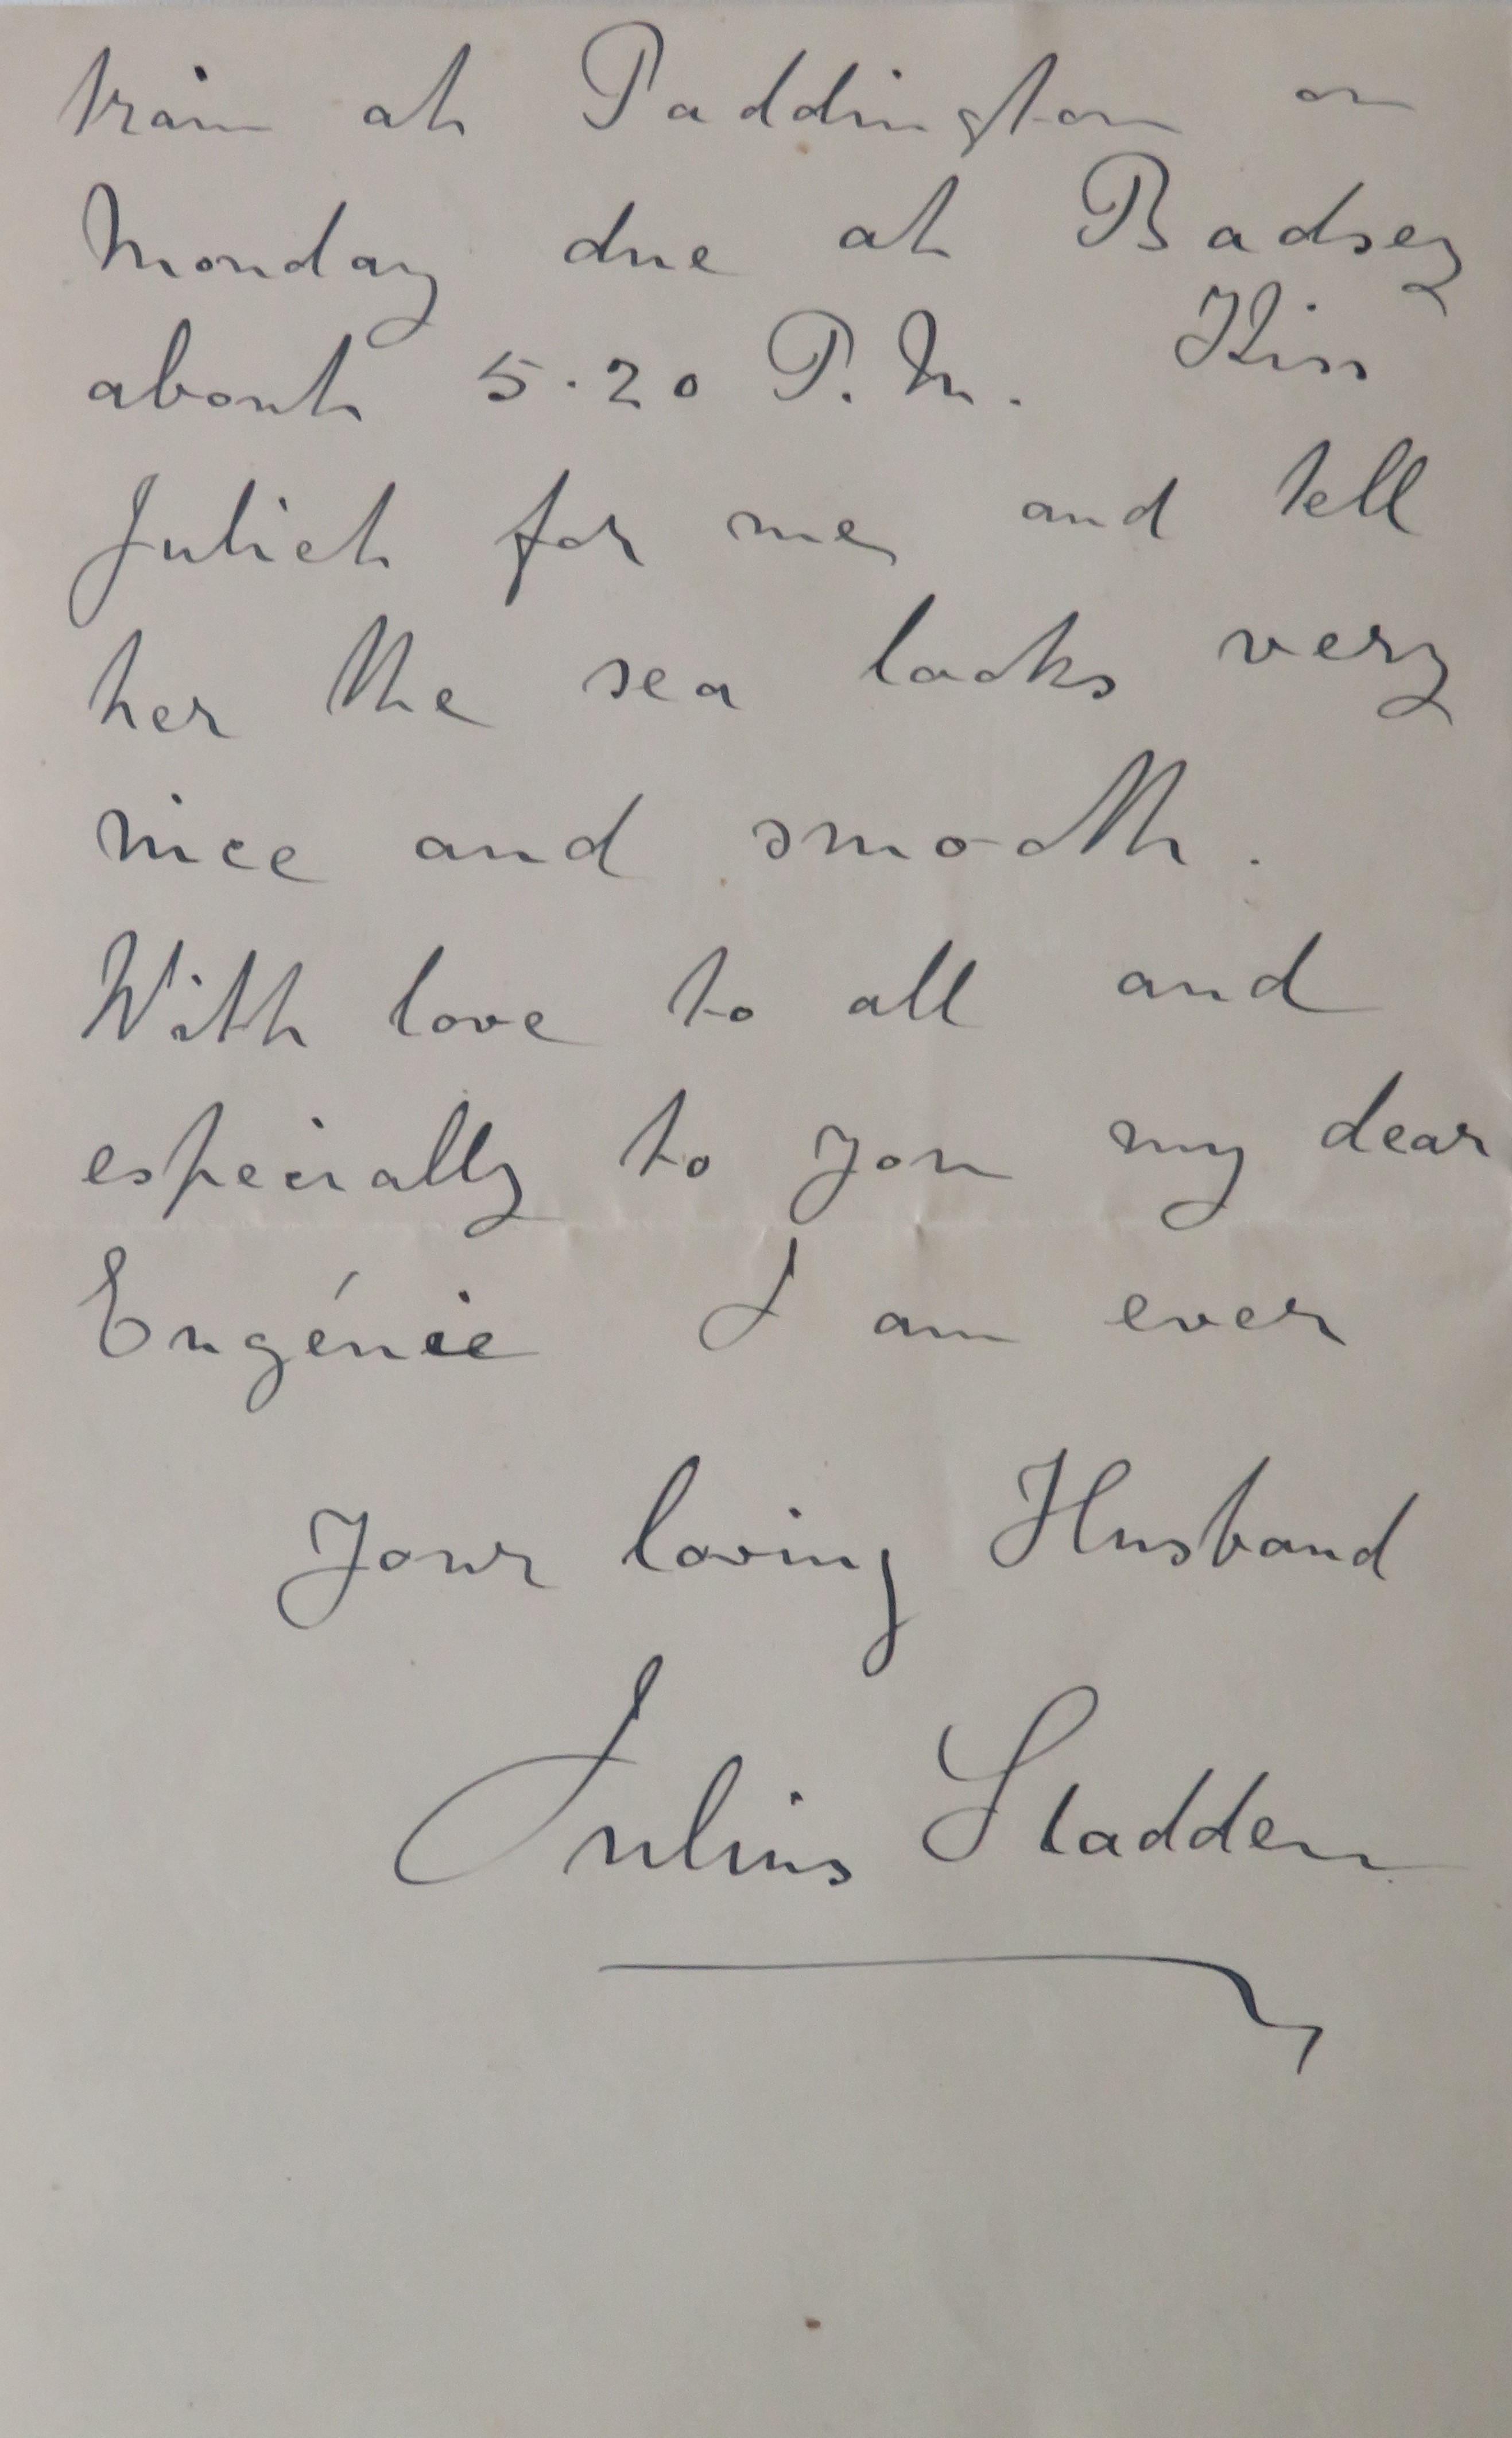 train at Paddington on
Monday due at Badsey
about 5.20 P.M. Kiss
Juliet for me and tell
her the sea looks very
nice and smooth.
With love to all and
especially to you my dear
Eugénie I am ever
Your loving Husband
Julius Sladden